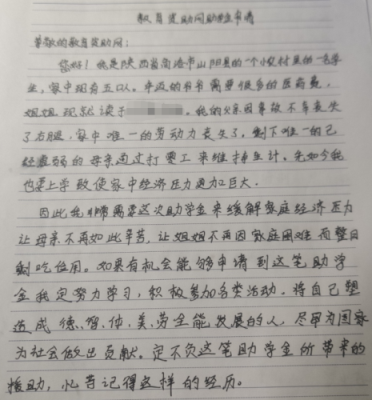 教育资助网助学申请
尊敬的教育资助网：
您好！我是陕西省商洛市山阳县的一个小农村里的一名学
生，家中现有五口人。年迈的爷爷需要很多的医药费，
姐姐现就读于 。我的父亲因事故不幸丧失
了右腿，家中唯一的劳动力丧失了，剩下唯一的已
经瘦弱的母亲通过打零工来维持生计。先如今我
也要上学致使家中经济压力更加巨大。
因此我非常需要这次助学金来缓解家庭经济压力
让母亲不再如此辛苦，让姐姐不再因家庭困难而整日
剩吃俭用。如果有机会能够申请到这笔助学
金我定努力学习，积极参加各类活动。将自己塑
造成德、智、体、美、劳全能发展的人，尽早为国家
为社会做出贡献。定不负这笔助学金所带来的
援助，忆苦记得这样的经历。